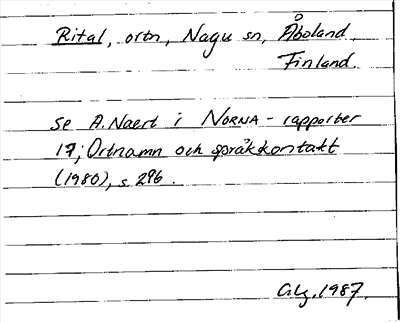 Rital, ortn, Nagu sn, Åboland,
Finland.
Se A. Naert i NORNA-rapporter
17, Ortnamn och språkkontakt
(1980), s. 296.
1987.